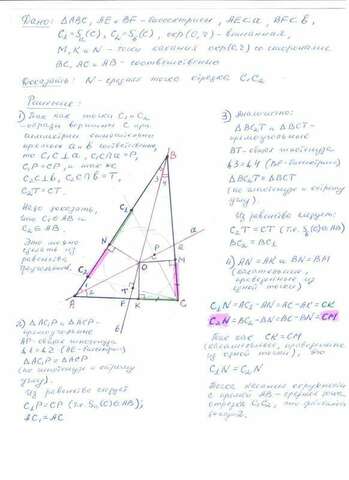 Дано: △ABC, AE и BF - биссектрисы, AE ⊂ a, BF ⊂ b,
C₁ = Sₐ(C), C₂ = S_b(C), окр(O, r) - вписанная,
M, K и N - точки касания окр(O, r) со сторонами
BC, AC и AB - соответственно
Доказать: N - середина отрезка C₁C₂
Решение:
1) Так как точки C₁ и C₂
- образы вершины C при
симметрии относительно
прямых a и b соответственно,
то C₁C ⊥ a, C₁C ∩ a = P,
C₁P = CP, и так же
C₂C ⊥ b, C₂C ∩ b = T,
C₂T = CT.
Надо доказать,
что C₁ ∈ AB и
C₂ ∈ AB.
Это можно
сделать из
равенства
треугольников.
2) △AC₁P и △ACP -
прямоугольные
AP - общая гипотенуза
∠1 = ∠2 (AE - биссектриса)
△AC₁P = △ACP
(по гипотенузе и острому
углу).
Из равенства следует
C₁P = CP (т.к. Sₐ(C) ∈ AB);
AC₁ = AC
B
3
4
C₁
N
C₂
A
1
2
O
P
E
M
a
T
F
K
C
b
3) Аналогично:
△BC₂T и △BCT -
прямоугольные
BT - общая гипотенуза
∠3 = ∠4 (BF - биссектриса)
△BC₂T = △BCT
(по гипотенузе и острому
углу).
Из равенства следует:
C₂T = CT (т.к. S_b(C) ∈ AB)
BC₂ = BC
4) AN = AK и BN = BM
(касательные,
проведённые из
одной точки)
C₁N = AC₁ - AN = AC - AK = CK
C₂N = BC₂ - BN = BC - BN = CM
Так как CK = CM
(касательные, проведённые
из одной точки), то
C₁N = C₂N
Точка касания окружности
с прямой AB - середина
отрезка C₁C₂, что